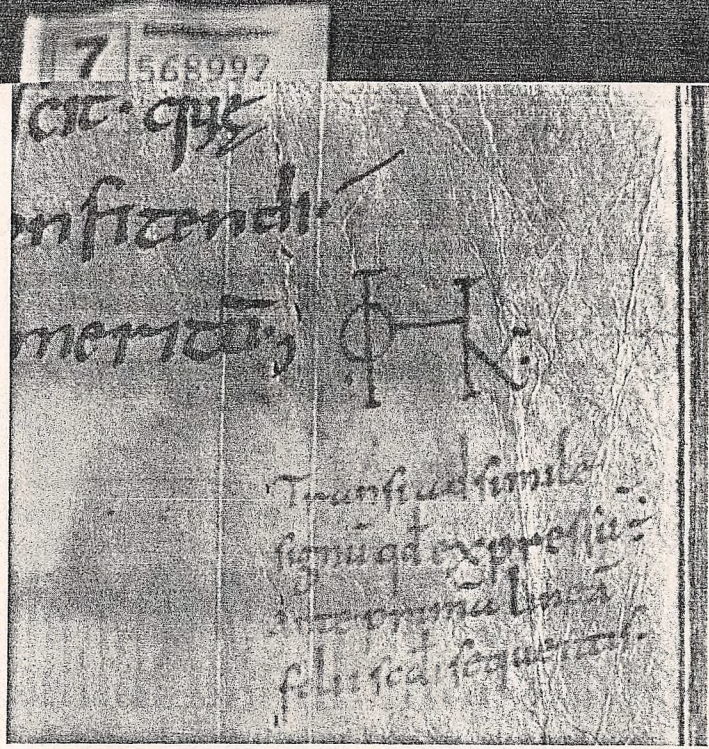 7 568997
cit· quę
onfitendi·
meritā·,
Transi ad simile
signū qđ expressū
lineā
folii scđi sequentis·